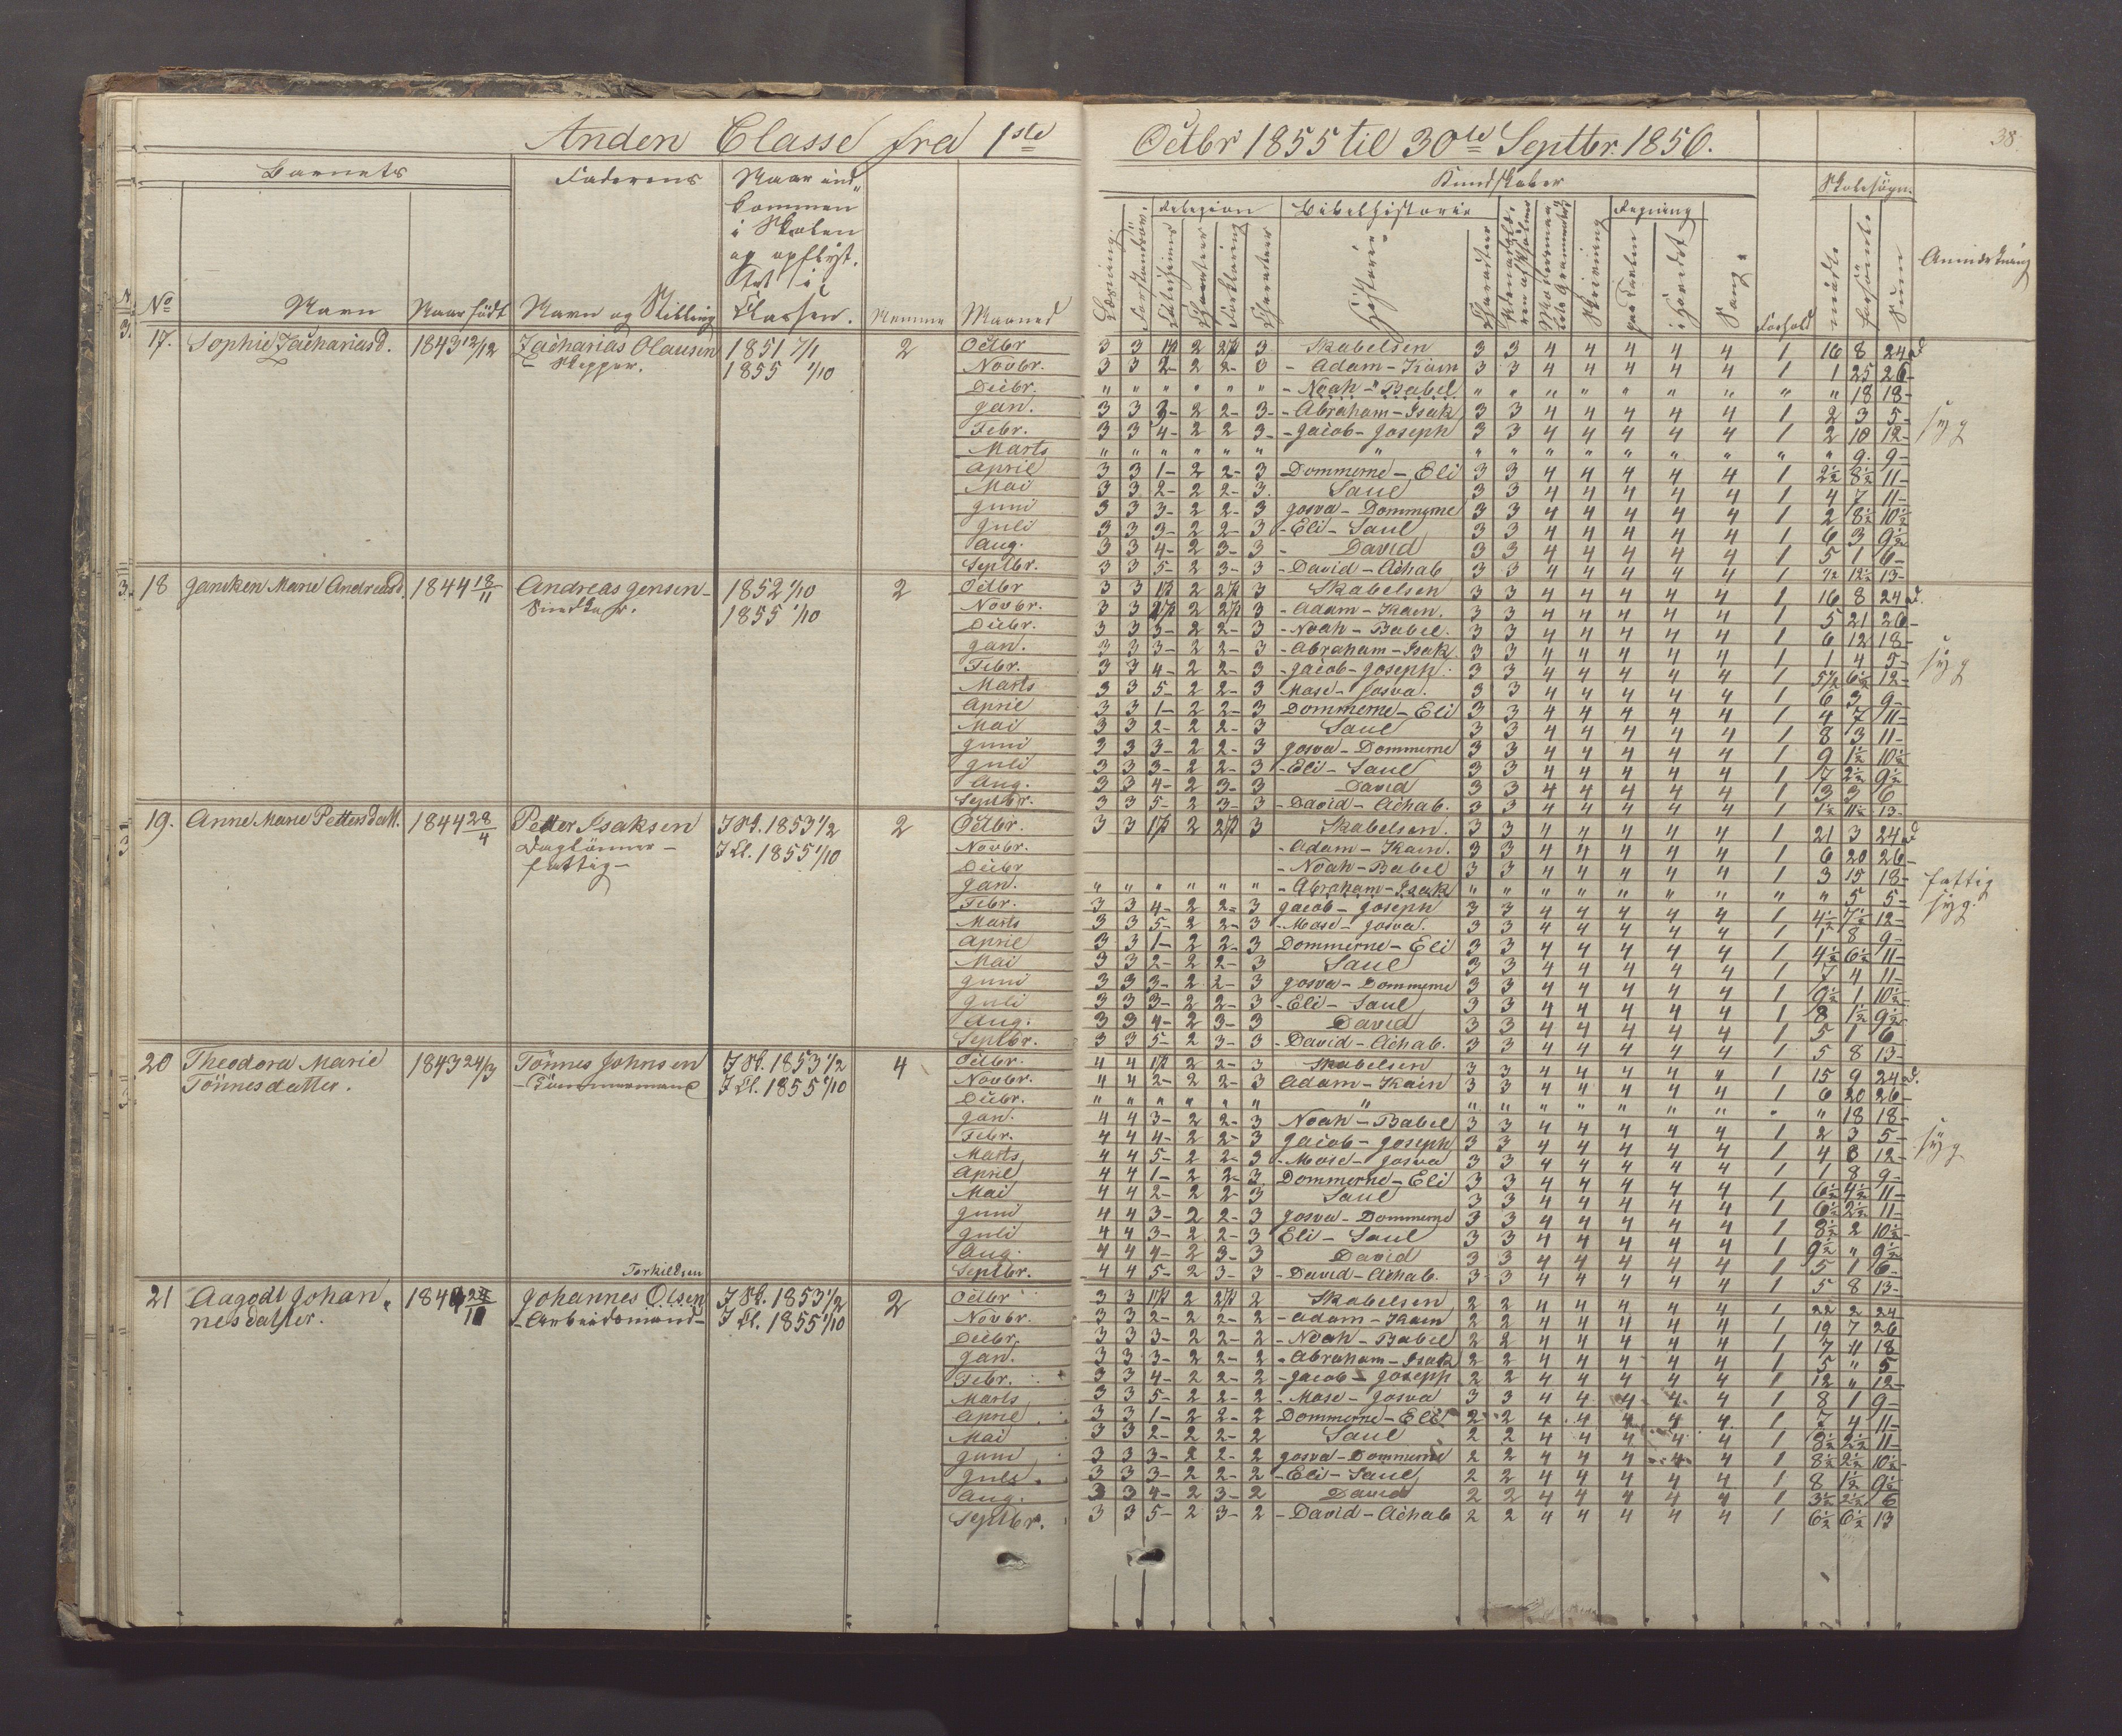 Anden Classe fra 1ste Octbr 1855 til 30te Septbr. 1856.
38.
Barnets Faderens Naar ind-
kommen
i Skolen
og opflyt-
tet i
No Navn Naar födt Navn og Stilling Classen. Nemme Maaned
Kundskaber Skolesögn.
Religion Bibelhistorie Regning
Læsning. Forklaring Historie Skrivning paa Tavlen i Hovedet Sang. Forhold mödte forsömte Sum Anmærkning
17. Sophie Zachariasd. 1843 12/12 Zacharias Olausen 1851 7/1 2
Skipper. 1855 1/10
Octbr 3 3 2 3 Skabelsen 3 3 4 4 4 4 4 1 16 8 24
Novbr. 3 3 2- 2 2- 3 - Adam - Kain 3 3 4 4 4 4 4 1 1 25 26-
Decbr. " " " " " " - Noah - Babel " " " " " " " " " 18 18-
Jan. 3 3 3- 2 2- 3- - Abraham - Isak 3 3 4 4 4 4 4 1 2 3 5-
Febr. 3 3 4- 2 2 3- - Jacob - Joseph 3 3 4 4 4 4 4 1 2 10 12- syg
Marts " " " " " " " " " " " " " " " " 9. 9-
April 3 3 1- 2 2- 3 Dommerne - Eli 3 3 4 4 4 4 4 1 2½ 8½ 11-
Mai 3 3 2- 2 2- 3. Saul 3 3 4 4 4 4 4 1 4 7 11-
Juni 3 3 3- 2 2- 3 Josva - Dommerne 3 3 4 4 4 4 4 1 2 8½ 10½
Juli 3 3 3- 2 2- 3 - Eli - Saul 3 3 4 4 4 4 4 1 6 3 9½
Aug. 3 3 4- 2 3- 3 - David 3 3 4 4 4 4 4 1 5 1 6-
Septbr. 3 3 5- 2 3- 3 - David - Achab 3 3 4 4 4 4 4 1 ½ 12½ 13-
18 Janeken Marie Andreasd. 1844 18/11 Andreas Jensen - 1852 1/10 2
1855 1/10
Octbr 3 3 2 3 Skabelsen 3 3 4 4 4 4 4 1 16 8 24
Novbr. 3 3 2 3 - Adam - Kain. 3 3 4 4 4 4 4 1 5 21 26-
Decbr. 3 3 3- 2 2- 3 - Noah - Babel. 3 3 4 4 4 4 4 1 6 12 18-
Jan. 3 3 3- 2 2- 3 - Abraham - Isak 3 3 4 4 4 4 4 1 1 4 5- syg
Febr. 3 3 4- 2 2- 3 - Jacob - Joseph. 3 3 4 4 4 4 4 1 5½ 6½ 12-
Marts 3 3 5- 2 2- 3 Mose - Josva. 3 3 4 4 4 4 4 1 6 3 9-
April 3 3 1- 2 2- 3 Dommerne - Eli 3 3 4 4 4 4 4 1 4 7 11-
Mai 3 3 2- 2 2- 3 Saul 3 3 4 4 4 4 4 1 8 3 11-
Juni 3 3 3- 2 2- 3 Josva - Dommerne 3 3 4 4 4 4 4 1 9 1½ 10½
Juli 3 3 3- 2 2- 3 - Eli - Saul 3 3 4 4 4 4 4 1 7 2½ 9½
Aug. 3 3 4- 2 3- 3 David 3 3 4 4 4 4 4 1 3 3 6
Septbr. 3 3 5- 2 3- 3 - David - Achab. 3 3 4 4 4 4 4 1 1½ 11½ 13-
19. Anne Marie Pettersdatt. 1844 28/4 Petter Isaksen I Sk. 1853 1/2 2
Daglönner - I Cl. 1855 1/10
fattig -
Octbr. 3 3 2 3 Skabelsen. 3 3 4 4 4 4 4 1 21 3 24
Novbr. - Adam - Kain. 3 3 4 4 4 4 4 1 6 20 26-
Decbr - Noah - Babel 3 3 4 4 4 4 4 1 3 15 18- fattig
Jan. " " " " " " - Abraham - Isak " " " " " " " " " 5 5- syg.
Febr. 3 3 4- 2 2- 3 Jacob - Joseph 3 3 4 4 4 4 4 1 4½ 7½ 12-
Marts 3 3 5- 2 2- 3 - Mose - Josva. 3 3 4 4 4 4 4 1 1 8 9-
April 3 3 1- 2 2- 3 Dommerne - Eli 3 3 4 4 4 4 4 1 4½ 6½ 11-
Mai 3 3 2- 2 2- 3 Saul 3 3 4 4 4 4 4 1 7 4 11-
Juni 3 3 3- 2 2- 3 Josva - Dommerne 3 3 4 4 4 4 4 1 9½ 1 10½
Juli 3 3 3- 2 2- 3 - Eli - Saul 3 3 4 4 4 4 4 1 8 1½ 9½
Aug. 3 3 4- 2 3- 3 David 3 3 4 4 4 4 4 1 5 1 6
Septbr. 3 3 5- 2 3- 3 - David - Achab. 3 3 4 4 4 4 4 1 5 8 13-
20 Theodora Marie 1843 24/3 Tönnes Johnsen I Sk. 1853 1/2 4
Tönnesdatter. - Tömmermand I Cl. 1855 1/10
Octbr. 4 4 2 2- 3 Skabelsen 3 3 4 4 4 4 " 1 15 9 24
Novbr. 4 4 2- 2 2- 3 Adam - Kain 3 3 4 4 4 4 4 1 6 20 26-
Decbr. " " " " " " " " " " " " " " " " 18 18-
Jan. 4 4 3- 2 2- 3 Noah - Babel 3 3 4 4 4 4 4 1 2 3 5-
Febr. 4 4 4- 2 2- 3 Jacob - Joseph 3 3 4 4 4 4 4 1 4 8 12- syg
Marts 4 4 5- 2 2- 3 - Mose - Josva 3 3 4 4 4 4 4 1 1 8 9-
April 4 4 1- 2 2- 3 Dommerne - Eli 3 3 4 4 4 4 4 1 6½ 4½ 11-
Mai 4 4 2- 2 2- 3 Saul 3 3 4 4 4 4 4 1 6½ 2½ 11-
Juni 4 4 3- 2 2- 3 Josva - Dommerne 3 3 4 4 4 4 4 1 8½ 2 10½-
Juli 4 4 3- 2 2- 3 Eli - Saul 3 3 4 4 4 4 4 1 9½ " 9½
Aug. 4 4 4- 2 3- 3 David 3 3 4 4 4 4 4 1 5 1 6-
Septbr. 4 4 5- 2 3- 3 - David - Achab. 3 3 4 4 4 4 4 1 5 8 13-
Torkildsen
21 Aagodt Johan- 184 Johannes Olsen I Sk. 1853 1/2 2
nesdatter. - Arbeidsmand - I Cl. 1855 1/10
Octbr 3 3 2 2 Skabelsen 2 2 4 4 4 4 4 1 22 2 24
Novbr. 3 3 2- 2 2- 2 - Adam - Kain 2 2 4 4 4 4 4 1 19 7 26
Decbr. 3 3 3- 2 2- 2 - Noah - Babel 2 2 4 4 4 4 4 1 7 11 18
Jan. 3 3 3- 2 2- 2 - Abraham - Isak 2 2 4 4 4 4 4 1 5 " 5
Febr. 3 3 4- 2 2- 2 - Jacob - Joseph 2 2 4 4 4 4 4 1 12 " 12-
Marts 3 3 5- 2 2- 2 - Mose - Josva 3 3 4 4 4 4 4 1 8 1 9-
April 3 3 1- 2 2- 2 Dommerne - Eli 2 2 4 4 4 4 4 1 7 4 11-
Mai 3 3 2- 2 2- 2 Saul 2 2 4 4 4 4 4 1 8½ 2½ 11-
Juni 3 3 3- 2 2- 2 Josva - Dommerne 2 2 4 4 4 4 4 1 8½ 2½ 10½-
Juli 3 3 3- 2 2- 2 - Eli - Saul 2 2 4 4 4 4 4 1 8 1½ 9½
Aug. 3 3 4- 2 3- 2 David 2 2 4 4 4 4 4 1 3½ 2½ 6
Septbr. 3 3 5- 2 3- 2 - David - Achab 2 2 4 4 4 4 4 1 6½ 6½ 13